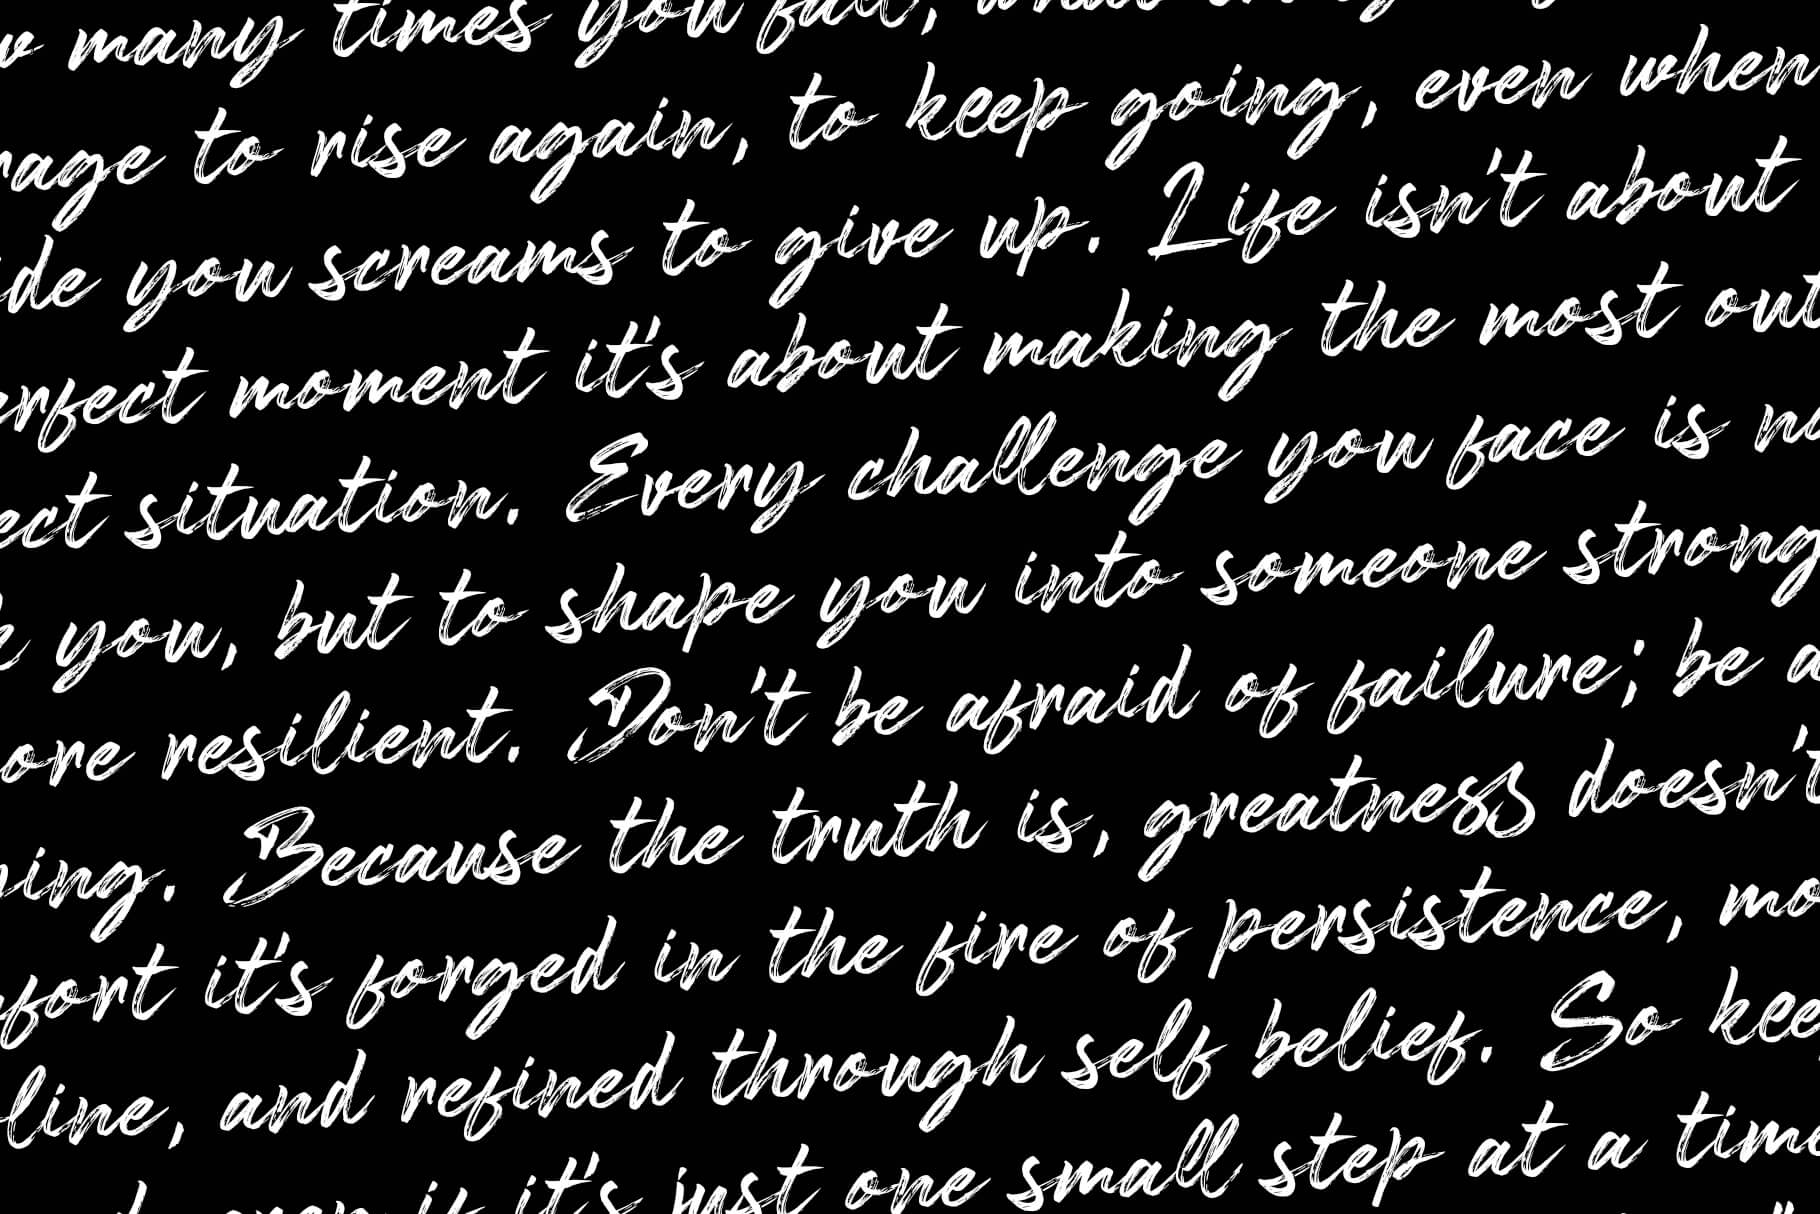 many times you fall, what
to rise again, to keep going, even when
you screams to give up. Life isn't about
moment it's about making the most out
situation. Every challenge you face is
you, but to shape you into someone
resilient. Don't be afraid of failure; be
Because the truth is, greatness doesn't
it's forged in the fire of persistence,
and refined through self belief. So
even if it's just one small step at a time